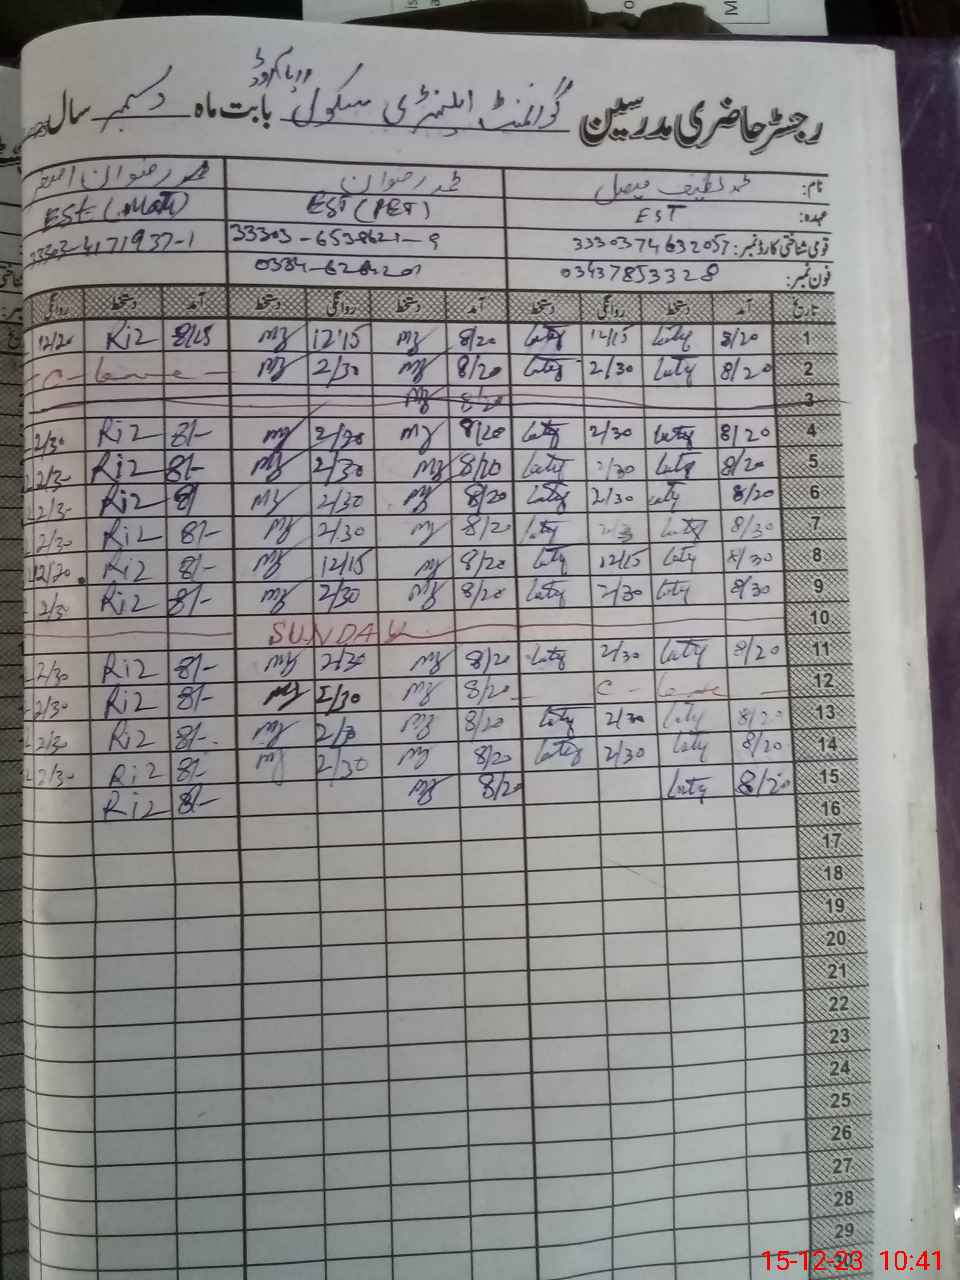 رجسٹر حاضری مدرسین گورنمنٹ ایلیمنٹری سکول بابت ماہ دسمبر سال
نام: محمد لطیف فیصل محمد رضوان محمد رضوان اصغر
عہدہ: EST EST (PET) EST (Math)
قومی شناختی کارڈ نمبر: 3330374632057 33303-6538621-9 33303-4171937-1
فون نمبر: 03437853328
تاریخ آمد دستخط روانگی دستخط آمد دستخط روانگی دستخط آمد دستخط روانگی
1 8/20 Laty 12/15 Laty 8/20 mz 12'15 mz 8/15 Riz 12/20
2 8/20 Laty 2/30 Laty 8/20 mz 2/30 mz - C - Leave -
3 8/20 mz
4 8/20 Laty 2/30 Laty 8/20 mz 2/30 mz 8/- Riz 2/30
5 8/20 Laty 2/30 Laty 8/20 mz 2/30 mz 8/- Riz 2/30
6 8/20 Laty 2/30 Laty 8/20 mz 2/30 mz 8/ Riz 2/30
7 8/30 Laty 2/3 Laty 8/20 mz 2/30 mz 8/- Riz 2/30
8 8/30 Laty 12/15 Laty 8/20 mz 12/15 mz 8/- Riz 12/20
9 8/30 Laty 2/30 Laty 8/20 mz 2/30 mz 8/- Riz 2/30
10 SUNDAY
11 8/20 Laty 2/30 Laty 8/20 mz 2/30 mz 8/- Riz 2/30
12 - C - Leave - 8/20 mz 2/30 mz 8/- Riz 2/30
13 8/20 Laty 2/30 Laty 8/20 mz 2/30 mz 8/- Riz 2/30
14 8/20 Laty 2/30 Laty 8/20 mz 2/30 mz 8/- Riz 2/30
15 8/20 Laty 8/20 mz 8/- Riz
16
17
18
19
20
21
22
23
24
25
26
27
28
29
30
15-12-23 10:41